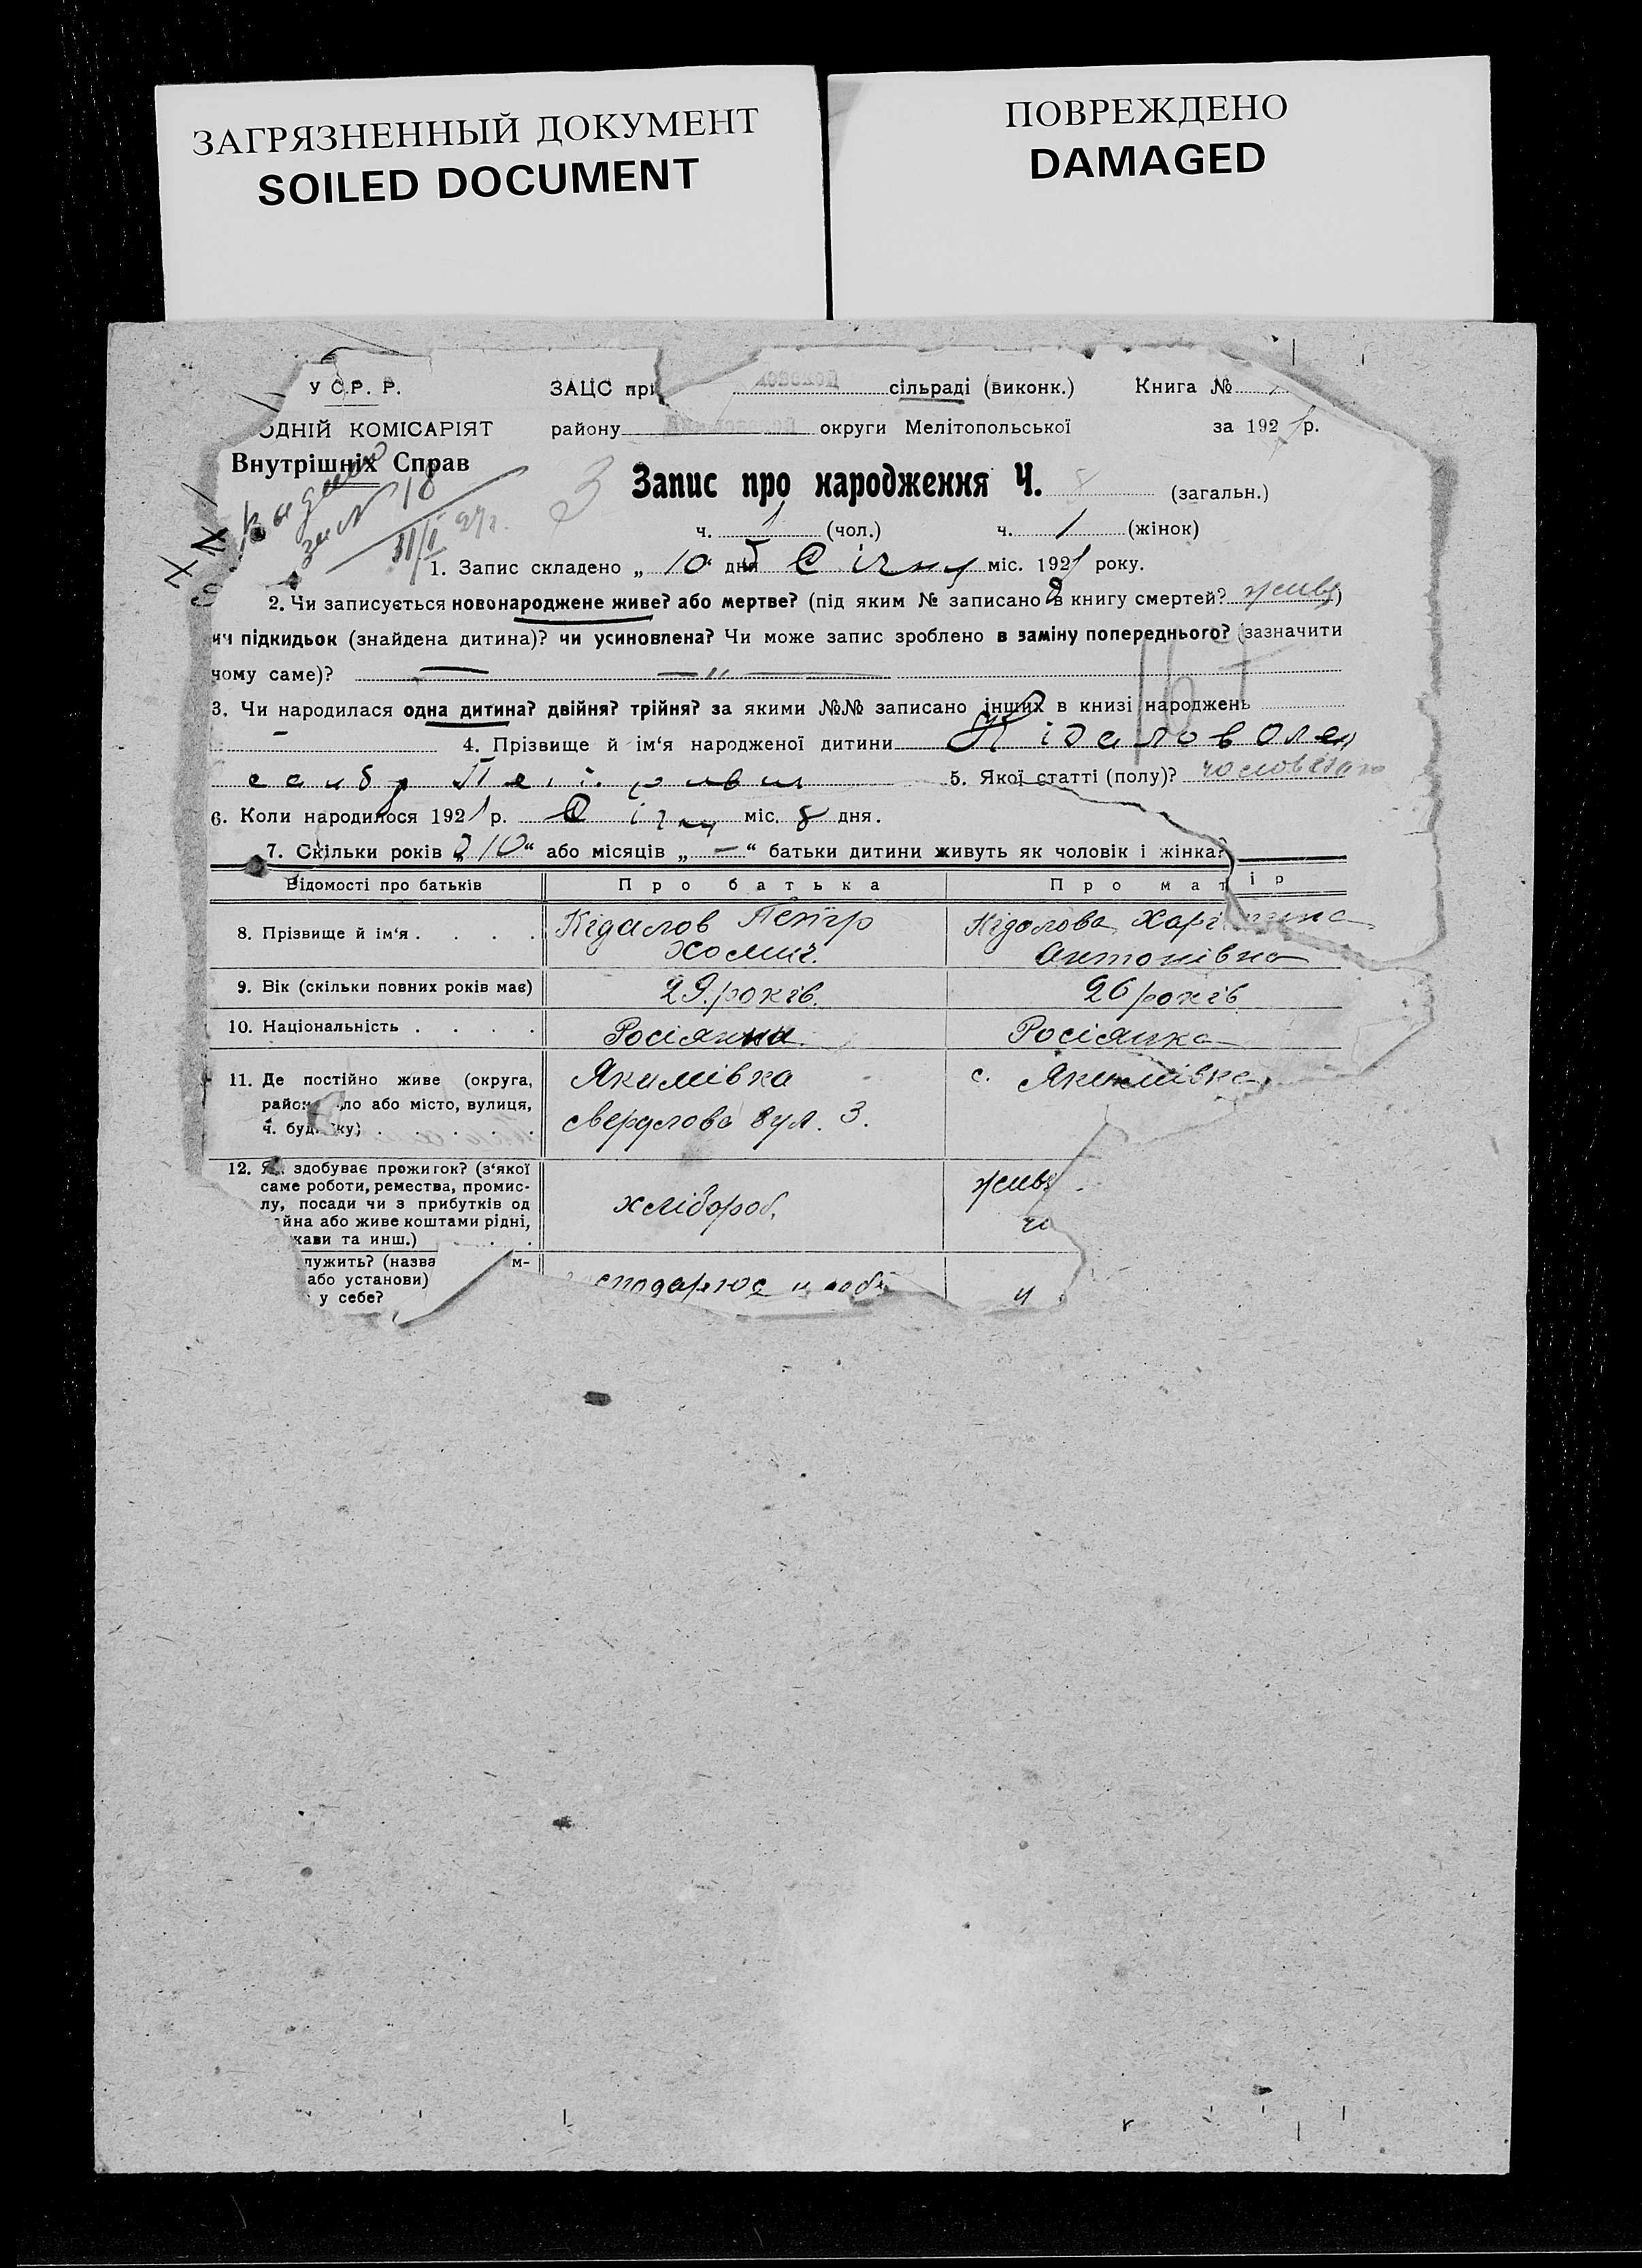 ЗАГРЯЗНЕННЫЙ ДОКУМЕНТ
SOILED DOCUMENT
ПОВРЕЖДЕНО
DAMAGED
У С.Р. Р. ЗАЦС при сільраді (виконк.) Книга №
ОДНІЙ КОМІСАРІЯТ району округи Мелітопольської за 192 р.
Внутрішніх Справ
Запис про народження Ч. 8 (загальн.)
ч. (чол.) ч. 1 (жінок)
1. Запис складено „ 10 " дня Січня міс. 192 року.
2. Чи записується новонароджене живе? або мертве? (під яким № записано в книгу смертей? живе)
чи підкидьок (знайдена дитина)? чи усиновлена? Чи може запис зроблено в заміну попереднього? (зазначити
чому саме)? — — " —
3. Чи народилася одна дитина? двійня? трійня? за якими №№ записано інших в книзі народжень
— 4. Прізвище й ім'я народженої дитини Кідалов Олек
сандр Петрович 5. Якої статті (полу)?
6. Коли народилося 192 р. Січня міс. 8 дня.
7. Скільки років „ 10 " або місяців „ — " батьки дитини живуть як чоловік і жінка?
Відомості про батьків Про батька Про матір
8. Прізвище й ім'я . . . . Кідалов Петро Кідалова
Хомич. Антонівна
9. Вік (скільки повних років має) 29 років. 26 років
10. Національність . . . . Росіянин Росіянка
11. Де постійно живе (округа, Якимівка с. Якимівка
район ло або місто, вулиця, Свердлова вул. 3.
ч. буд ку) . . . . .
12. Як здобуває прожиток? (з'якої
саме роботи, ремества, промис-
лу, посади чи з прибутків од хлібороб.
йна або живе коштами рідні,
жави та инш.) . . .
лужить? (назва м-
або установи) сподарює
у себе?